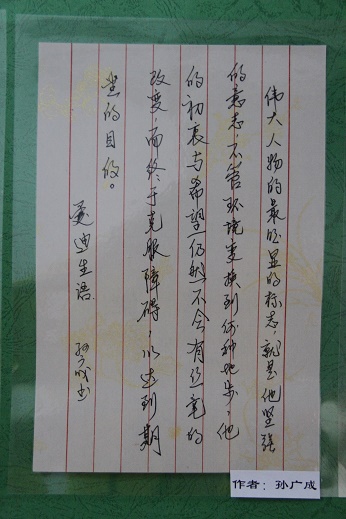 伟大人物的最明显的标志，就是他坚强
的意志，不管环境变换到何种地步，他
的初衷与希望仍然不会有丝毫的
改变，而终于克服障碍，以达到期
望的目的。
爱迪生语
孙广成书
作者：孙广成